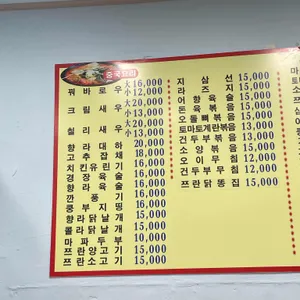 중국요리
꿔바로우 大 16,000
小 12,000
크림새우 大 20,000
小 13,000
칠리새우 大 20,000
小 13,000
향라대하 20,000
고추잡채 18,000
치킨유린기 16,000
경장육슬 16,000
향라육슬 16,000
깐풍기 15,000
쿵부지띵 15,000
향라닭날개 15,000
콜라닭날개 15,000
마파두부 10,000
쯔란양고기 15,000
쯔란소고기 15,000
지삼선 15,000
라즈지 15,000
어향육슬 15,000
돈육볶음 15,000
오돌뼈볶음 15,000
토마토계란볶음 13,000
건두부볶음 13,000
오이무침 12,000
건두부무침 12,000
쯔란닭똥집 15,000